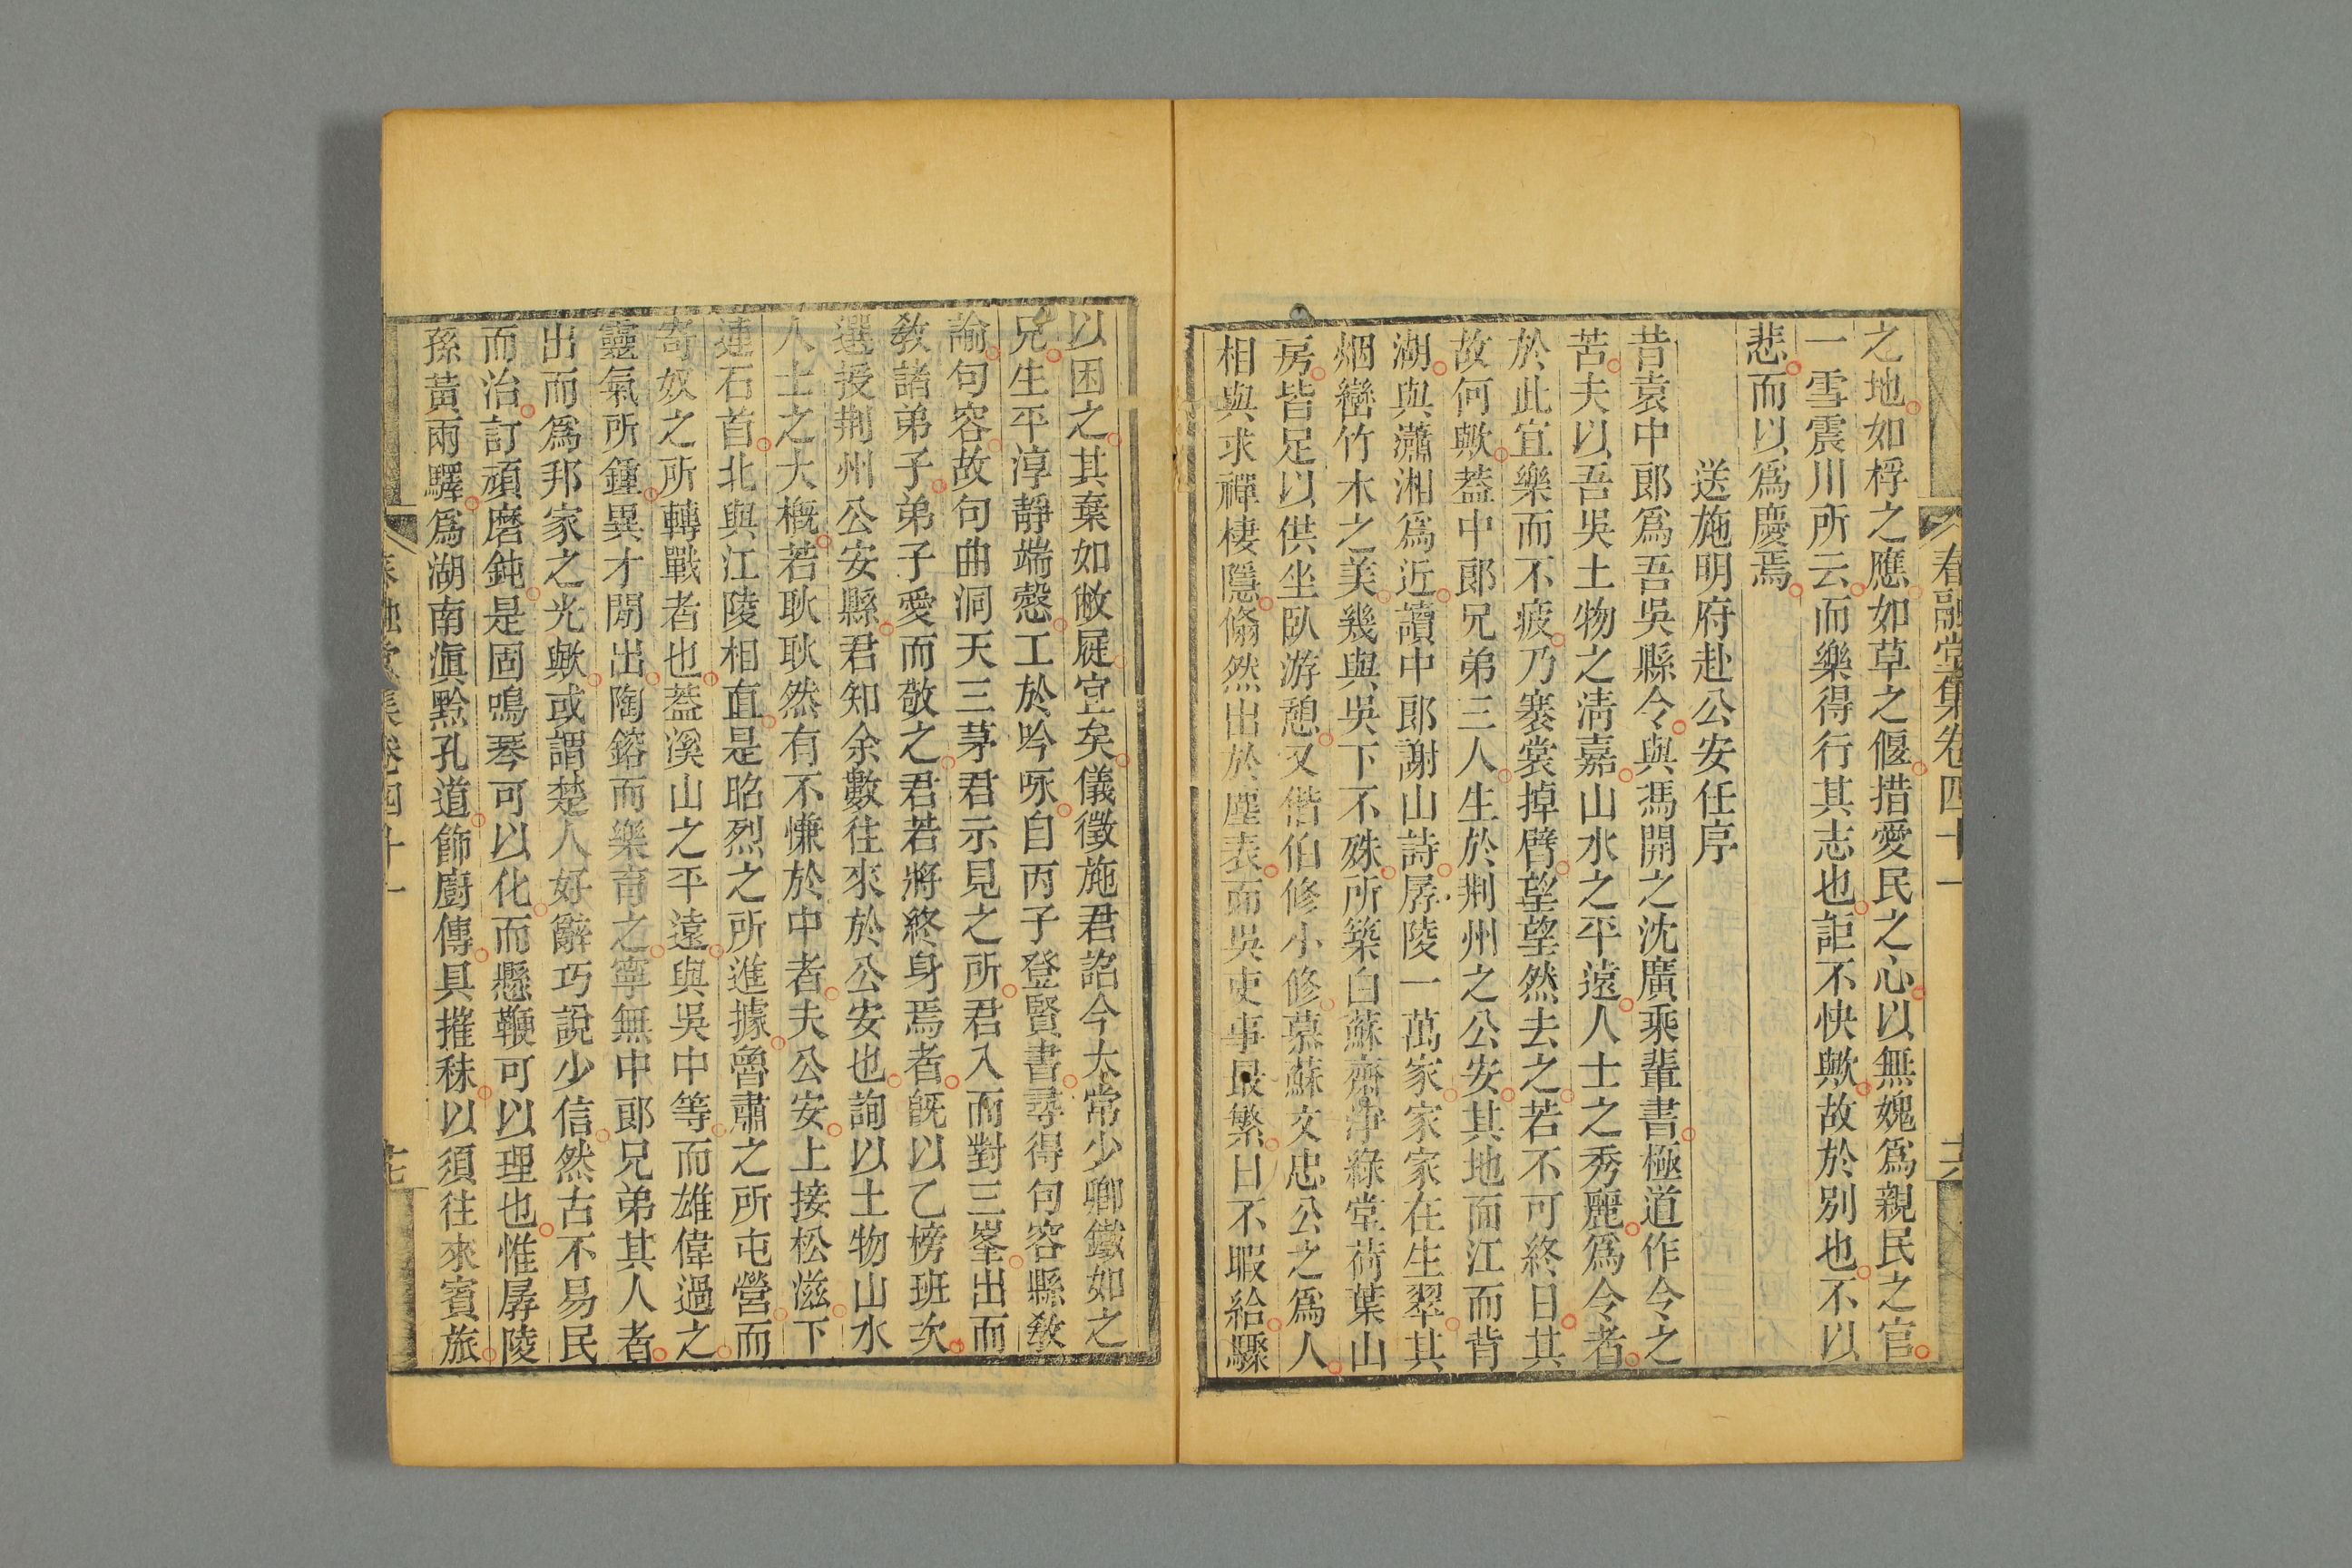 春融堂集卷四十一
之地如桴之應如草之偃措愛民之心以無媿爲親民之官
一雪震川所云而樂得行其志也詎不快歟故於別也不以
悲而以爲慶焉
送施明府赴公安任序
昔袁中郎爲吾吳縣令與馮開之沈廣乘輩書極道作令之
苦夫以吾吳土物之淸嘉山水之平遠人士之秀麗爲令者
於此宜樂而不疲乃褰裳掉臂望望然去之若不可終日其
故何歟蓋中郎兄弟三人生於荆州之公安其地面江而背
湖與瀟湘爲近讀中郎謝山詩孱陵一萬家家家在生翠其
烟巒竹木之美幾與吳下不殊所築白蘇齋淨綠堂荷葉山
房皆足以供坐臥游憩又偕伯修小修慕蘇文忠公之爲人
相與求禪棲隱翛然出於塵表而吳吏事最繁日不暇給驟
以困之其棄如敝屣宜矣儀徵施君詔今太常少卿鐵如之
兄生平淳靜端慤工於吟咏自丙子登賢書尋得句容縣敎
諭句容故句曲洞天三茅君示見之所君入而對三峯出而
敎諸弟子弟子愛而敬之君若將終身焉者旣以乙榜班次
選授荆州公安縣君知余數往來於公安也詢以土物山水
人士之大槪若耿耿然有不慊於中者夫公安上接松滋下
連石首北與江陵相直是昭烈之所進據魯肅之所屯營而
寄奴之所轉戰者也蓋溪山之平遠與吳中等而雄偉過之
靈氣所鍾異才閒出陶鎔而樂育之寧無中郎兄弟其人者
出而爲邦家之光歟或謂楚人好辭巧說少信然古不易民
而治訂頑磨鈍是固鳴琴可以化而懸鞭可以理也惟孱陵
孫黃兩驛爲湖南滇黔孔道飾廚傳具摧秣以須往來賓旅